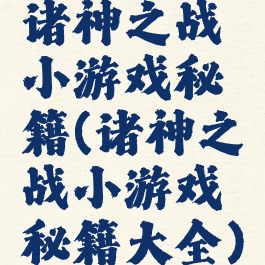 诸神之战
小游戏秘
籍(诸神之
战小游戏
秘籍大全)